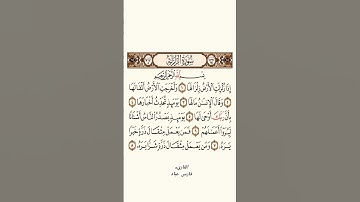 سُورَةُ الزَّلْزَلَةِ
بِسْمِ اللَّهِ الرَّحْمَٰنِ الرَّحِيمِ
إِذَا زُلْزِلَتِ الْأَرْضُ زِلْزَالَهَا ١ وَأَخْرَجَتِ الْأَرْضُ أَثْقَالَهَا
٢ وَقَالَ الْإِنسَانُ مَا لَهَا ٣ يَوْمَئِذٍ تُحَدِّثُ أَخْبَارَهَا ٤
بِأَنَّ رَبَّكَ أَوْحَىٰ لَهَا ٥ يَوْمَئِذٍ يَصْدُرُ النَّاسُ أَشْتَاتًا
لِّيُرَوْا أَعْمَالَهُمْ ٦ فَمَن يَعْمَلْ مِثْقَالَ ذَرَّةٍ خَيْرًا
يَرَهُ ٧ وَمَن يَعْمَلْ مِثْقَالَ ذَرَّةٍ شَرًّا يَرَهُ ٨
القارىء
فارس عباد